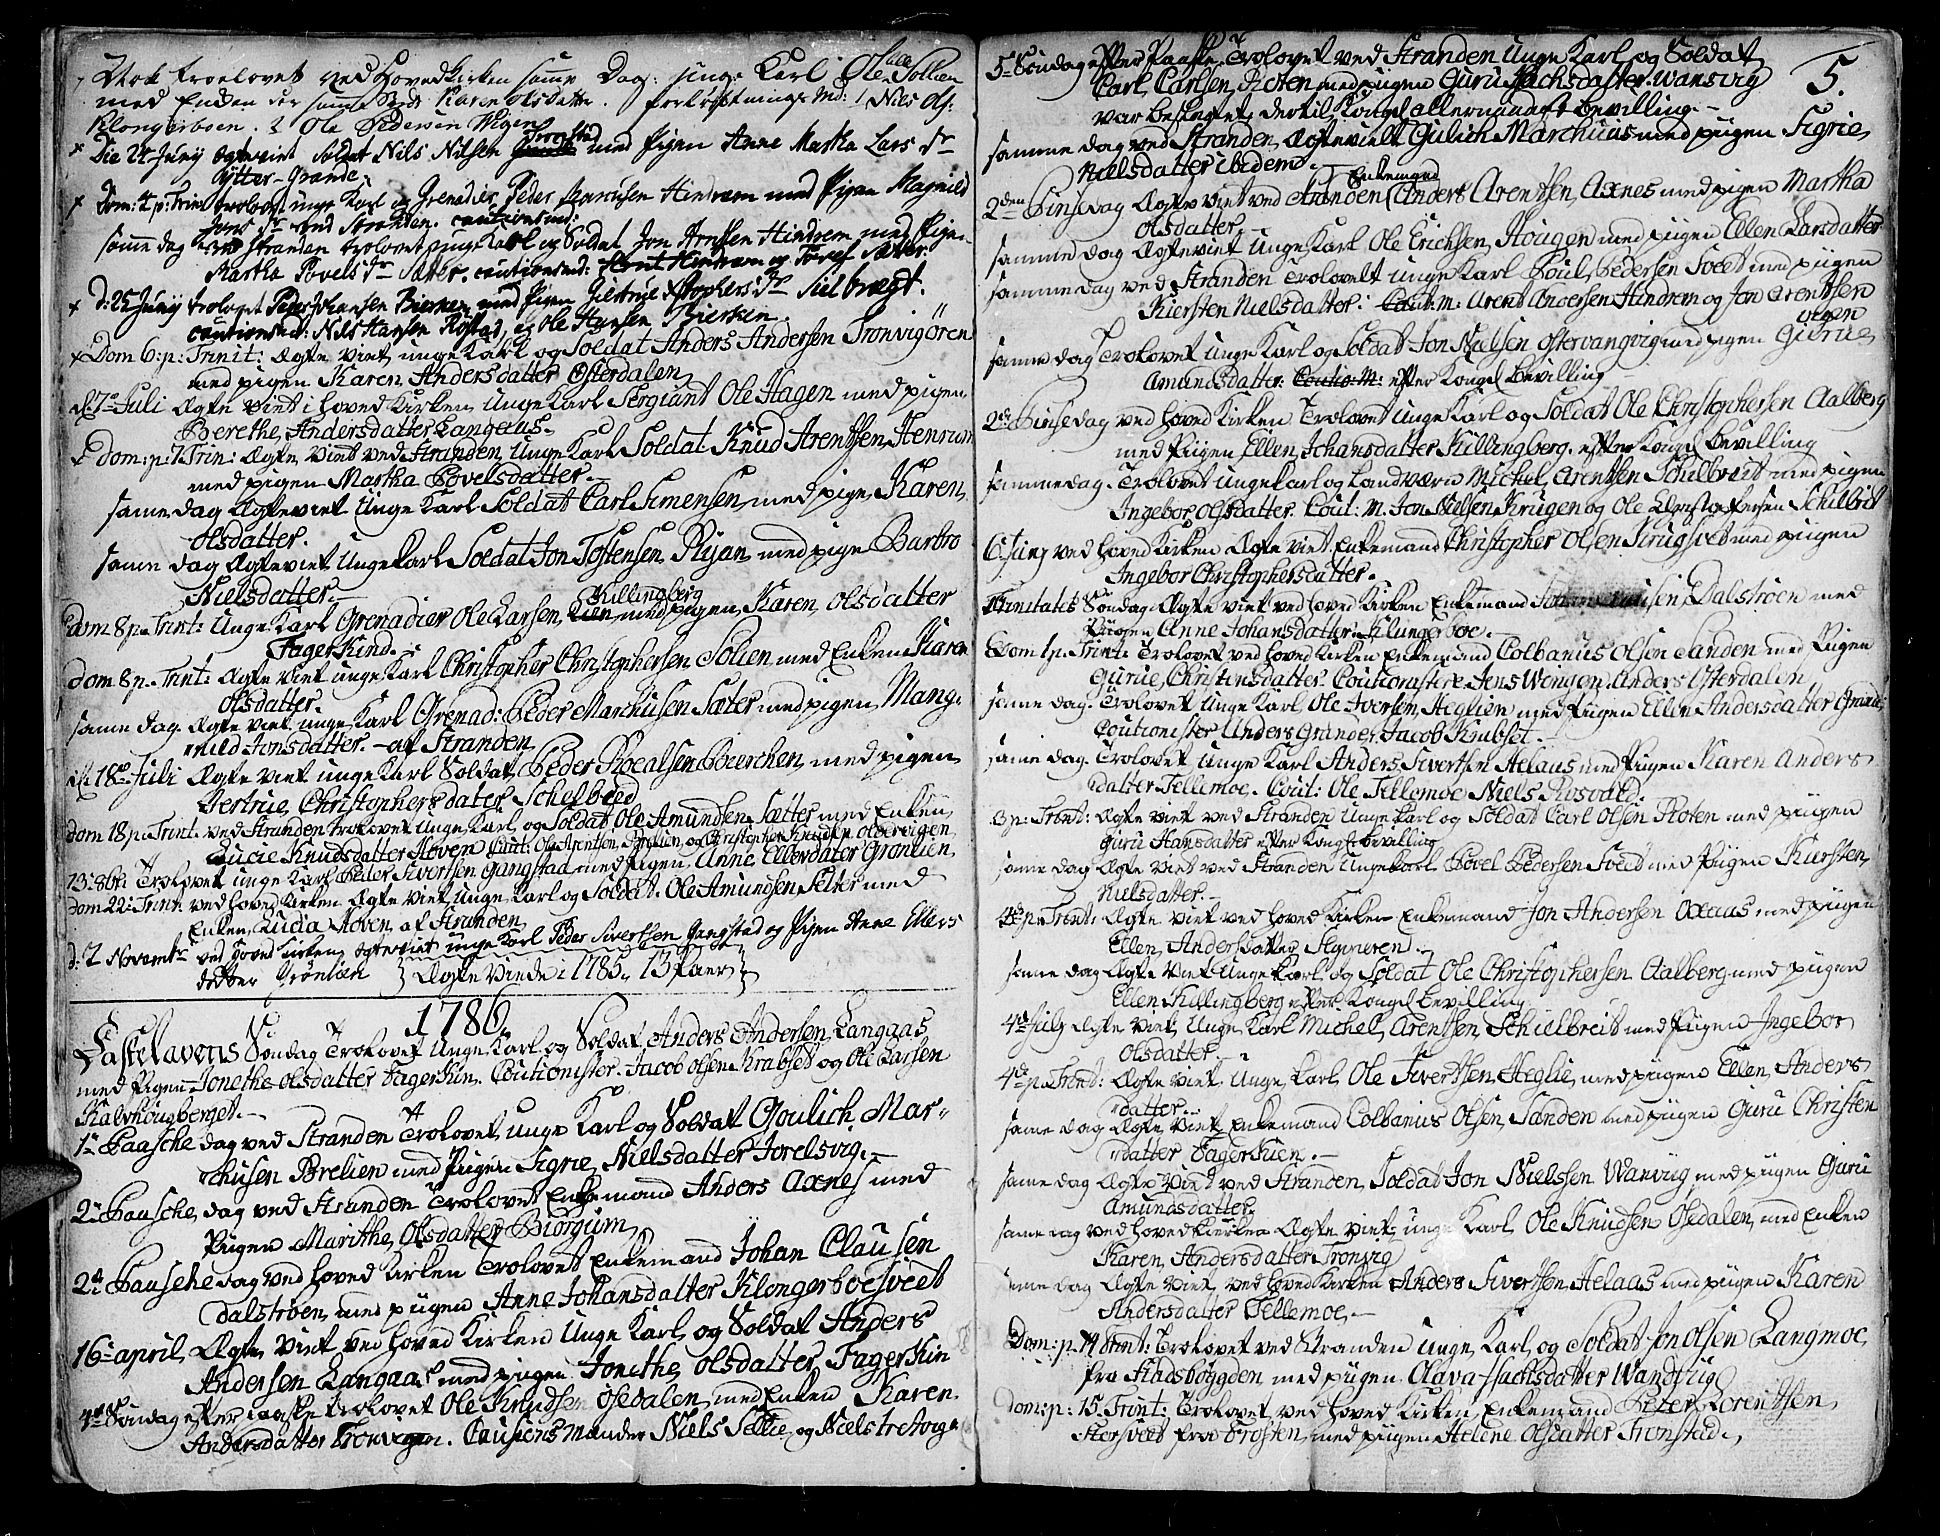 Nok troelovet ved Hovedkirken samme Dag: unge Karl Ole Sollien
med Enken ver samme Sted Karen Olsdatter. forløftnings Md: 1 Nils Ols:
Klongerboen. 2 Ole Pedersen Wigen
Die 22 Juny ægteviet Soldat Nils Nilsen Tronstad med Pigen Anne Martha Lars Dr
Rytter-Grande.
Dom: 4 p: Trin: trolovet unge Karl og Grenadier Peder Marcusen Hindrem med Pigen Magnild
Jons Dr ved Stranden. cautionsmd:
samme dag ved Stranden trolovet unge Karl og Soldat Jon Arntsen Hindrem med Pigen
Martha Povels Dr Sætter. cautionsmd: Arnt Hindrem og Povel Sætter.
D: 25 Juny trolovet Peder Johansen Bierken med Pigen Giertrue Xstophers Dr Skilbregt.
cautionsmd: Nils Hansen Rostad, og Ole Hansen Bierken.
Dom 6: p: Trinit: Ægte Viet unge Karl og Soldat Anders Andersen Tronvigören
med pigen Karen Andersdatter Østerdalen
d: 7de Juli Ægte Viet i hoved Kirken Unge Karl Sergiant Ole Hagen med pigen
Berethe, Andersdatter Langaas.
dom: p: 7 Trin: Ægte Viet ved Stranden, Unge Karl Soldat Knud Arentsen Henrum
med pigen Martha Povelsdatter.
samme dag Ægteviet Unge Karl Soldat Carl Simensen med pige Karen
Olsdatter.
samme dag Ægteviet Unge Karl Soldat Jon Tostensen Ryan med pige Barbro
Nielsdatter.
Killingberg
Dom 8 p. Trint: Unge Karl Grenadier Ole Larsen, Lien med pigen Karen Olsdatter
Fagerkind.
dom 8 p. Trint: Ægte Viet unge Karl Christopher Christophersen Solien med Enken Karen
Olsdatter.
samme dag. Ægte Viet unge Karl Grenad: Peder Marchusen Sæter med pigen Mang-
nild Jonsdatter. af Stranden
d: 18de Juli Ægte Viet unge Karl Soldat Peder Bierchen med pigen
Gertrue, Christophersdatter Schelbred
dom 18 p. Trint. ved Stranden trolovet Unge Karl og Soldat Ole Amundsen Sætter med Enken
Lucie Knudsdatter Moven Caut: Ole Arentsen Brelien, og Christopher Knudsen Olbervigen
13 8bri Trolovet unge Karl Peder Sivertsen Gangstad med Pigen Anne Ellersdatter Grønlien
dom 22: Trint ved hoved Kirken Ægte Viet Unge Karl og Soldat Ole Amundsen Setter med
Enken, Lucia Moven af Stranden
d: 2 Novembr ved Hoved Kirken ægteviet unge Karl Peder Sivertsen Gangstad og Pigen Anne Ellers
datter Grönlien } Ægte Viede i 1785. 13 Paer }
1786
Fastelavens Søndag Trolovet Unge Karl og Soldat Anders Andersen Langaas
med Pigen Jonethe Olsdatter Fagerkin. Coutionister. Jacob Olsen Krabset og Ole Larsen
Kalvhougberget.
1te Paasche dag ved Stranden Trolovet, unge Karl og Soldat Goulich Mar-
chusen Brelien med Pigen Sigrie, Nielsdatter Jorelsvig.
2de Paasche dag ved Stranden Trolovet Enkemand Anders Axnes med
Pigen Marithe, Olsdatter Biorgum
2de Paasche dag ved hoved Kirken Trolovet Enkemand Johan Clausen
Dalstroen med piigen Anne Johansdatter Klongerboesveet
16de april, Ægte Viet ved hoved Kirken Unge Karl og Soldat Anders
Andersen Langaas med pigen Jonethe, Olsdatter Fagerkin
4de Søndag efter paaske trolovet Ole Knudsen Osedalen med Enken Karen
Andersdatter Tronvigen. Cautionsmænder Niels Sellie og Niels
5te Søndag efter Paaske Trolovet ved Stranden Unge Karl og Soldat 5.
Carl Carlsen Roten med piigen Guru Isachsdatter Wansvig
var beslegtet dertil Kongel allernaadigst Bevilling.
samme dag ved Stranden, Ægteviet Gulich Marchuus med piigen Sigrie
Nielsdatter ibidem.
2den Pinsedag Ægte Viet ved Stranden Enkemand Anders Arentsen Axnes med pigen Martha
Olsdatter.
samme dag Ægteviet Unge Karl Ole Erichsen Hougen med pigen Ellen Larsdatter
samme dag ved Stranden Trolovet unge Karl Poul Pedersen Sveet med piigen
Kiersten Nielsdatter: Caut: M: Arent Andersen Hindrem og Jon Arentsen
igen
samme dag Trolovet Unge Karl og Soldat Jon Nielsen Ostervangvig med pigen Giørue,
Amundsdatter: Coutio: M: efter Kongel Bevilling
2de Pinsedag ved hoved Kirken Trolovet Unge Karl og Soldat Ole Christophersen Aalberg
med Piigen Ellen, Johansdatter Killingberg. efter Kongel Bevilling
samme dag Trolovet Unge Karl og Landværn Michel Arentsen Schilbreit med pigen
Ingebor Olsdatter. Cout: M. Jon Nielsen Krugen og Ole Christophersen Schilbret
6 Juny ved hoved Kirken Ægte Viet Enkemand Christopher Olsen Krugsvet med piigen
Ingebor Christophersdatter.
Trinitatis Søndag Ægte Viet ved hoved Kirken Enkemand Johan Clausen Dalstroen med
Piigen Anne Johansdatter Klungerboe.
Dom 1 p. Trint: Trolovet ved hoved Kirken Enkemand Colbanus Olsen Sanden med Pigen
Gurue, Christensdatter. Coutionistere Jens Wongen. Anders Østerdalen
samme dag Trolovet Unge Karl Ole Iversen Heglien med Pigen Ellen Andersdatter Grande
Coutionister Anders Grande, Jacob Krabset.
samme dag. Trolovet Unge Karl Anders Sivertsen Aelaus med Pigen Karen Anders
datter Tellemoe. Cout: Ole Tellemoe Niels Rosvald.
3 p: Trint: Ægte Viet ved Stranden Unge Karl og Soldat Carl Olsen Roten med piigen
Guru Hansdatter efter Kongl: Bevilling
samme dag Ægte Viet ved Stranden Unge Karl Povel Pedersen Sveet med Piigen Kiersten
Nielsdatter.
p. Trint: Ægte Viet ved hoved Kirken Enkemand Jon Andersen Oxaas med pigen
Ellen, Andersdatter
samme dag Ægte Viet Unge Karl og Soldat Ole Christophersen Aalberg med piigen
Ellen Killingberg efter Kongel Bevilling
4de July Ægte Viet Unge Karl Michel Arentsen Schielbreit med Pigen Ingebor
Olsdatter.
4de p. Trint: Ægte Viet Unge Karl Ole Sivertsen Heglie, med piigen Ellen Anders
datter.
samme dag Ægte Viet Enkemand Colbanius Olsen Sanden med piigen Guru Christen
datter Fagerkien.
samme dag Ægte Viet ved Stranden, Soldat Jon Nielssen Wanviig med piigen Guru
Amundsdatter.
samme dag ved hoved Kierken Ægte Viet unge Karl Ole Knudsen Osedalen med Enken
Karen, Andersdatter Tronvig
samme dag Ægte Viet ved hoved Kirken Anders Sivertsen Aelaas med pigen Karen
Andersdatter Tellemoe.
Dom: p. 14 Trint: Trolovet ved Stranden Unge, Karl og Soldat Jon Olsen Langmoe
fra Stadsbøygden med piigen Olava Isachsdatter Wandsug
Dom: p: 15 Trint: Trolovet ved hoved Kirken Enkemand Peter Lorentsen
Hersveet fra Frosten, med piigen Helene Olsdatter Tronstad.